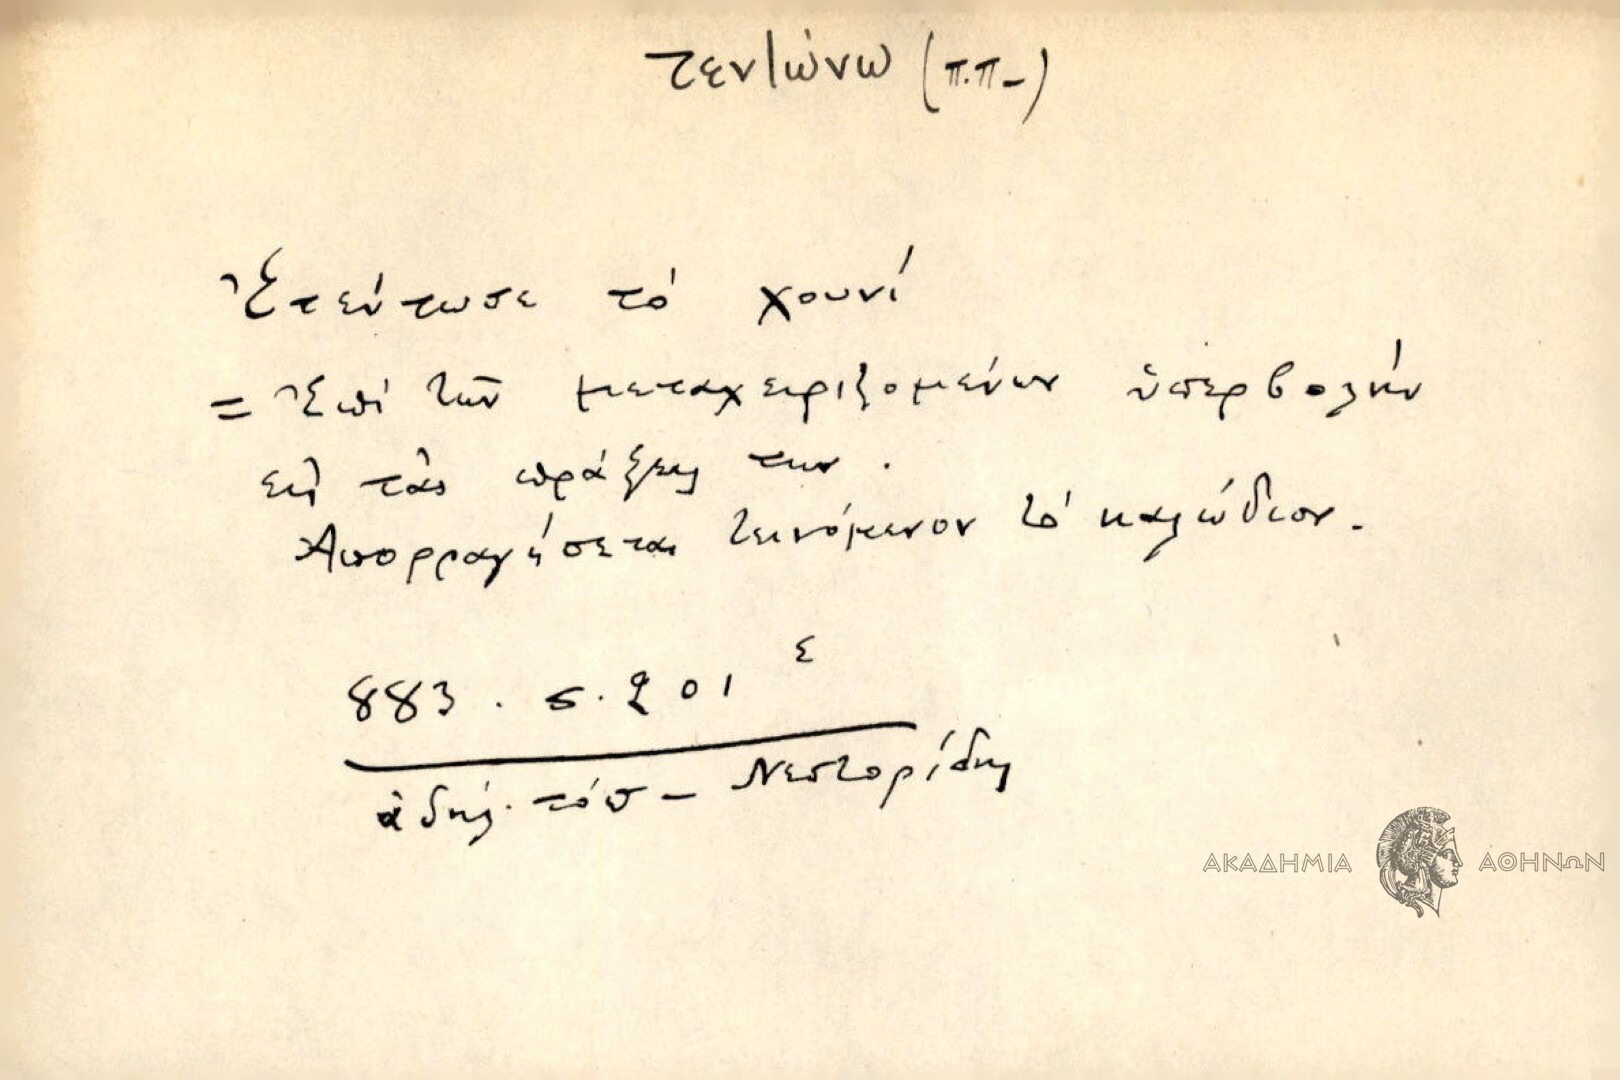 τεντώνω (π.π-)
Ἐτέντωσε τό χουνί
= Ἐπί τῶν μεταχειριζομένων ὑπερβολήν
εἰς τὰς πράξεις των.
Ἀπορραγήσεται τεινόμενον τό καλώδιον.
883. σ. 201 ε
ἀδήλ. τόπ - Νεστορίδης
ΑΚΑΔΗΜΙΑ ΑΘΗΝΩΝ